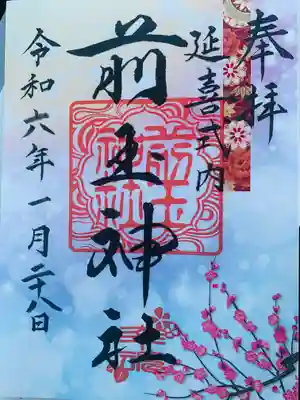 奉拝
延喜式内
前玉神社
令和六年一月二十八日
前玉神社